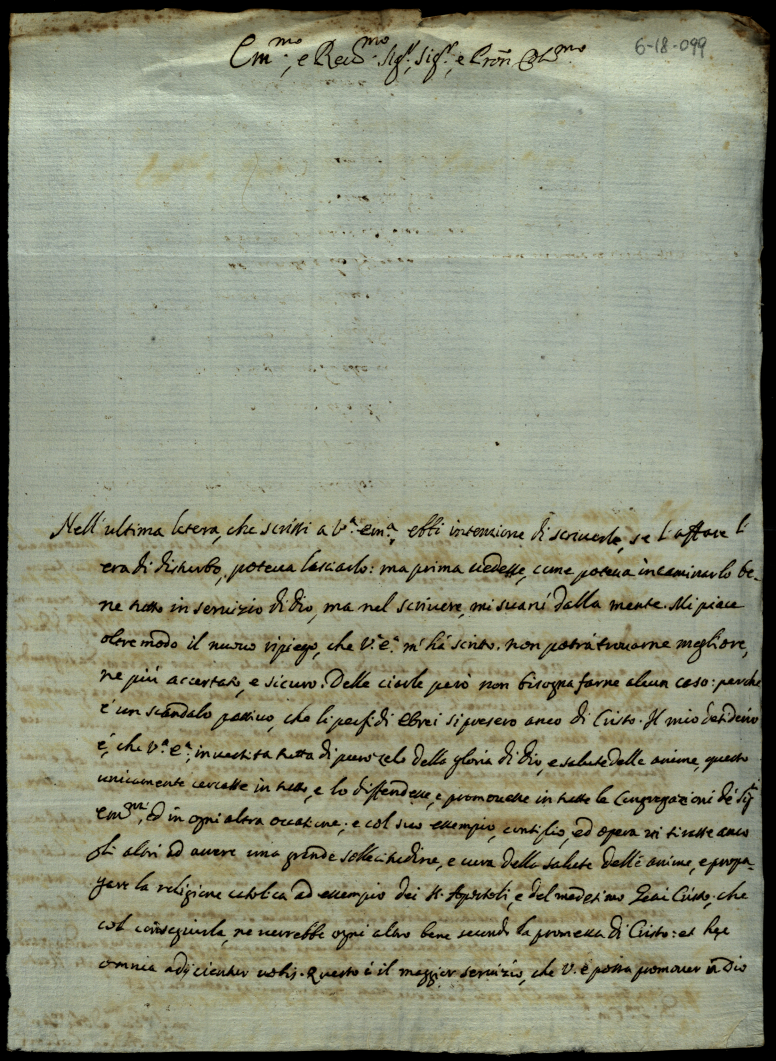 6-18-099
Em.mo, e Reu.mo Sig.r, Sig.r, e Pron Col.mo
Nell'ultima letera, che scrissi a V.a em.a, ebbi intenzione di scriuerle, se l'affare l'
era di disturbo, poteua lasciarlo: ma prima uedesse, come poteua incaminarlo be-
ne tutto in seruizio di dio, ma nel scriuere, mi suanì dalla mente. Mi piace
oltre modo il nuouo ripiego, che V.a e.a m'hà scrito. non potrà trouarne megliore,
ne più accertato, e sicuro. Delle ciarle però non bisogna farne alcun caso: perche
è un scandalo passiuo, che li perfidi Ebrei si presero anco di Cristo. Il mio desiderio
è, che V.a e.a, inuestita tutta di puro zelo della gloria di dio, e salute delle anime, questo
unicamente cercasse in tutto, e lo diffendesse, e promouesse in tutte le Congregazioni de Sig.ri
em.mi, ed in ogni altra occasione; e col suo essempio, consiglio, ed opera ui tirasse anco
gli altri ad auere una grande sollecitudine, e cura della salute dell'anime, e propa-
gare la religione catolica ad essempio dei SS. Apostoli, e del medesimo Gesù Cristo, che
col conseguirla, ne uerrebbe ogni altro bene secondo la promessa di Cristo: et hæc
omnia adijcientur uobis. Questo è il maggior seruizio, che V. e. possa promouer in dio